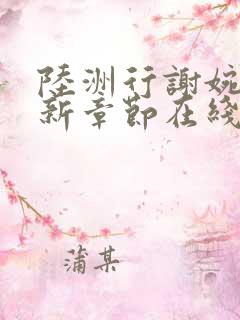 陸洲行謝婉
新章節在綫
蒲某